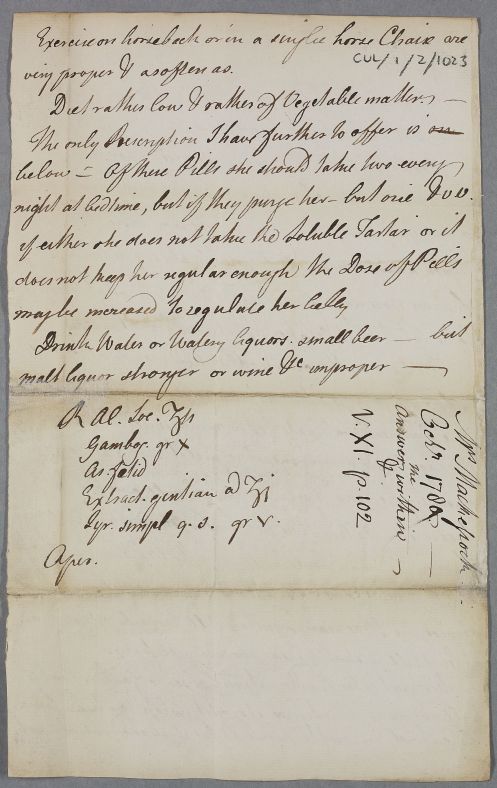 Exercise on horseback or in a single horse Chaise are
very proper & as often as.
CUL/1/2/1023
Diet rather low & rather of Vegetable matter. —
The only Prescription I have further to offer is on
below = Of these Pills she should take two every
night at bedtime, but if they purge her – but one & v.v.
if either she does not take the Soluble Tartar or it
does not keep her regular enough the Dose of Pills
may be increased to regulate her belly
Drink Water or Watery liquors. small beer — but
malt liquor stronger or wine &c improper —
℞ Al. Soc. ʒſs
Gambog. gr x
As. fœtid
Extract. gentian a ʒj
Syr. simpl q. s. gr v.
Aper.
Mrs
Octr. 1786
the
Answer, within
V. XI p. 102